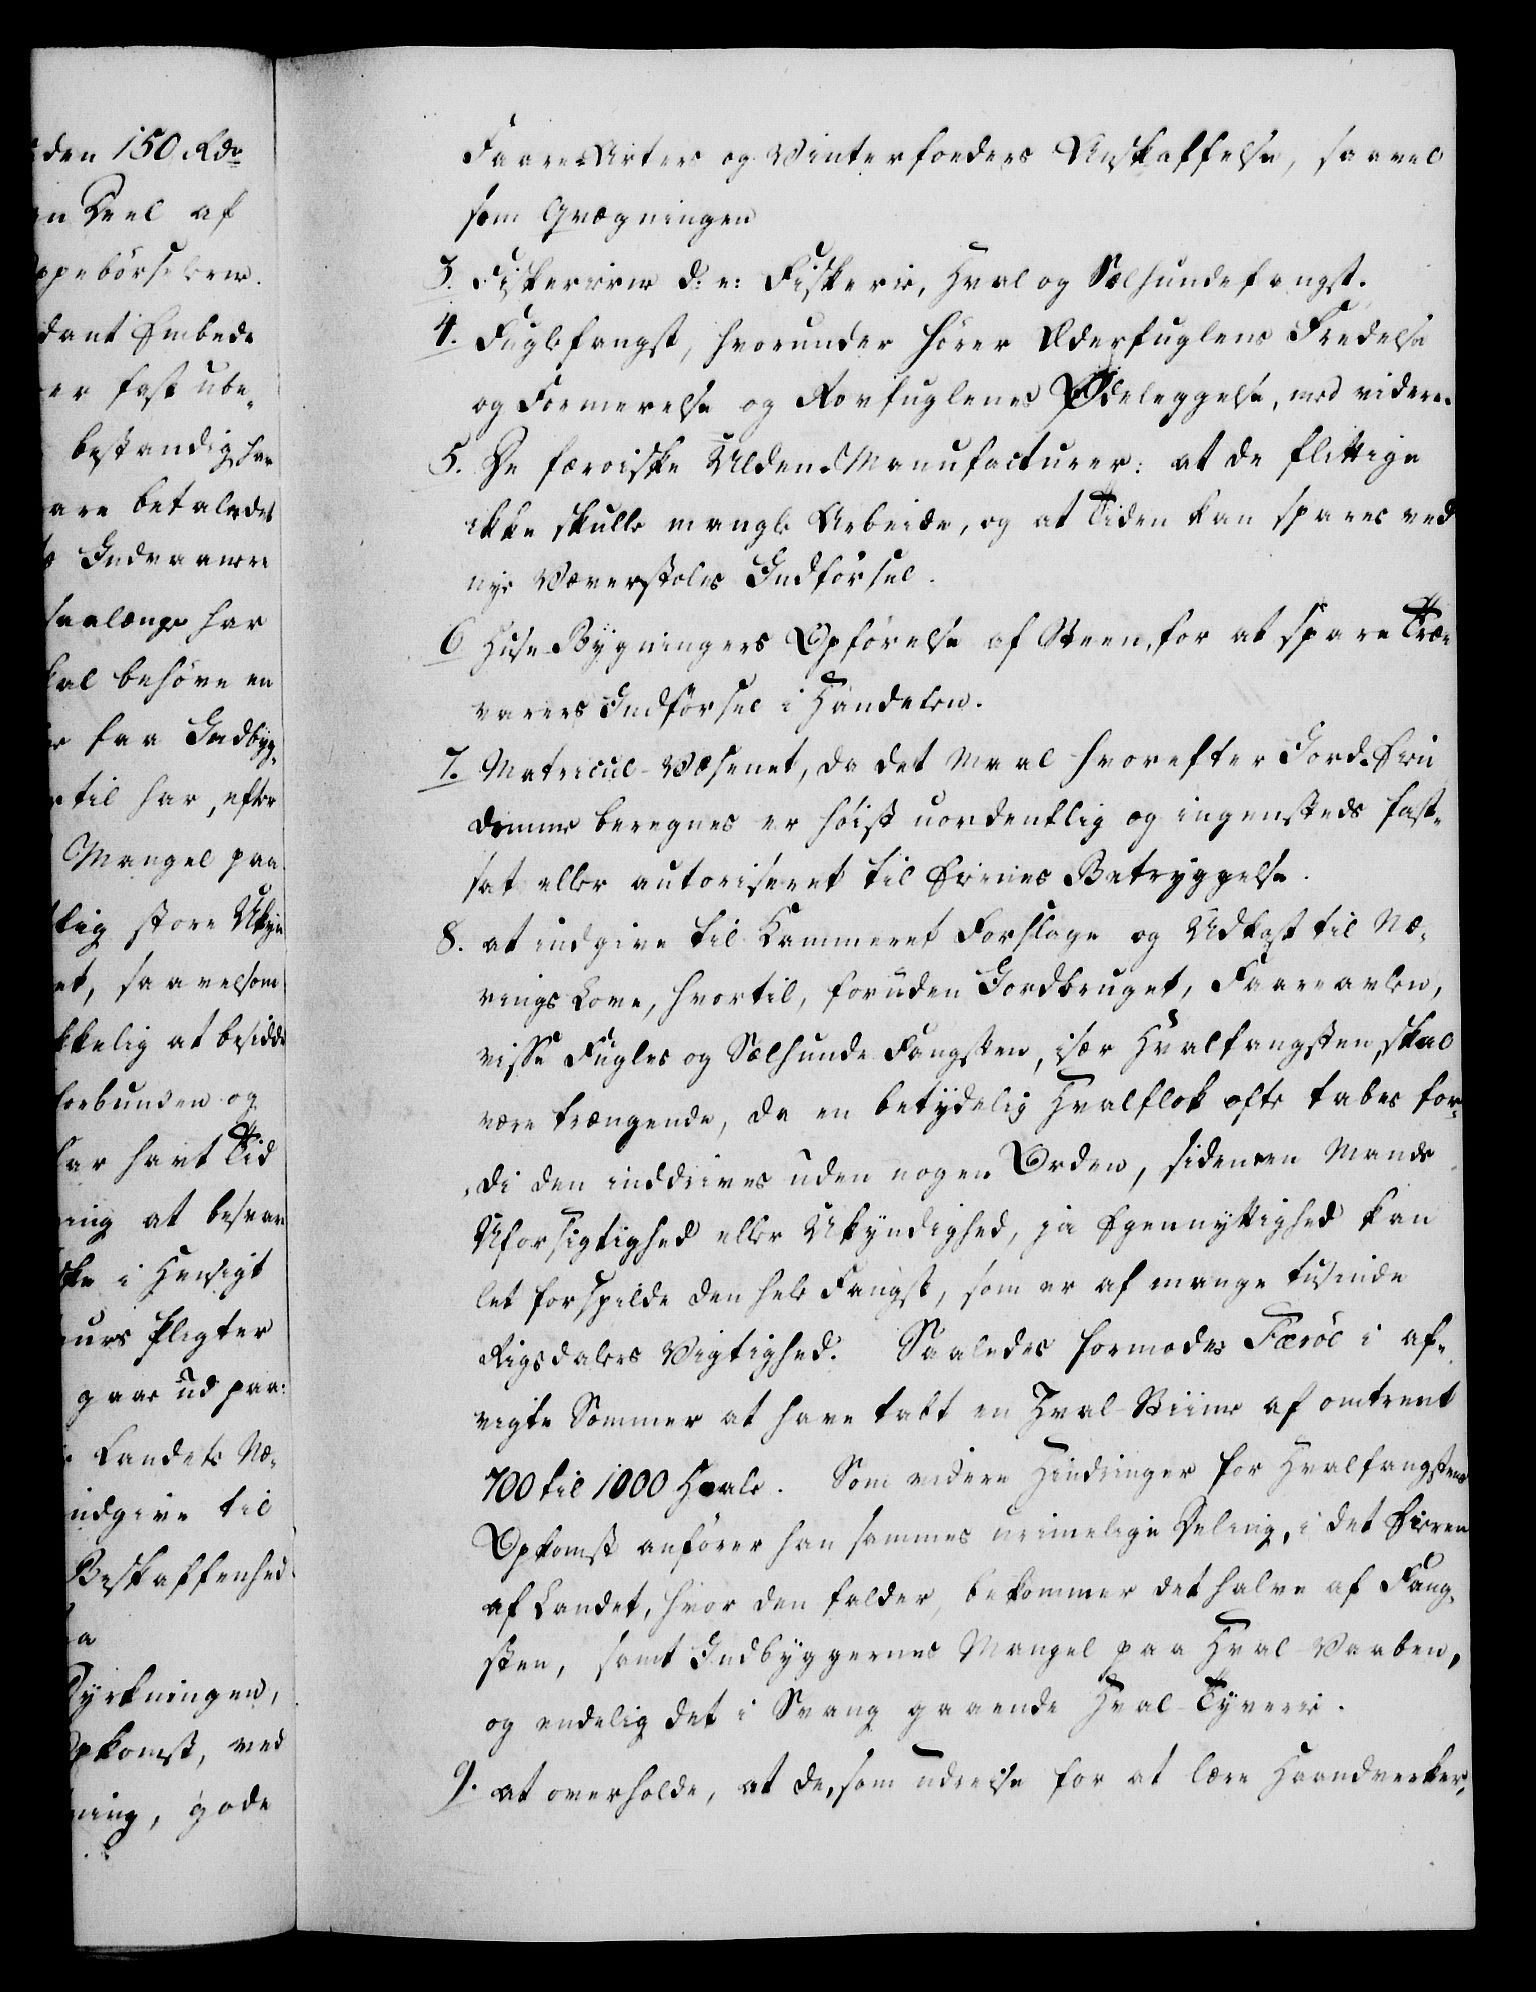 den 150 Rdr
en Deel af
Oppebørselerne.
dant Embede
er fast ube-
bestandig har
are betaledes
Indvaanere
saalænge har
kal behøve en
faa Indbyg-
til har, efter
Mangel paa
lig store Ukyn
et, saavelsom
kkelig at besidde
forbunden og
har havt Tid
ing at besvare
ske i Hensigt
eurs Pligter
gaae ud paa:
Landets Næ-
indgive til
Beskaffenhed
a
Dyrkningen,
Opkomst, ved
ning, gode
Faare-Arter og Vinterfoeders Anskaffelse, saavel
som Qvægningen
3. Fiskerierne d: e: Fiskerie, Hval og Sælhundefangst.
4. Fuglefangst, hvorunder hører Ederfuglens Fredelse
og Formerelse og Rovfuglenes Ødeleggelse, med videre.
5. De færøiske Ulden Manufacturer: at de flittige
ikke skulle mangle Arbeide, og at Tiden kan spares ved
nye Væverstoles Indførsel.
6 Huse-Bygningers Opførelse af Steen, for at spare Træe
varers Indførsel i Handelen.
7. Matricul-Væsenet, da det Maal hvorefter Jord-Eien
domme beregnes er høist uordentlig og ingensteds fast-
sat eller autoriseret til Eiernes Betryggelse.
8. at indgive til Kammeret Forslage og Udkast til Næ-
rings Love, hvortil, foruden Jordbruget, Faareavlen,
visse Fugles og Sælhunde Fangsten, især Hvalfangsten, skal
være trængende, da en betydelig Hvalflok ofte tabes for-
di den inddrives uden nogen Orden, siden een Mands
Uforsigtighed eller Ukyndighed, ja Egennyttighed kan
let forspilde den hele Fangst, som er af mange tusinde
Rigsdalers Vigtighed. Saaledes formodes Færøe i af-
vigte Sommer at have tabt en Hval-Stiime af omtrent
700 til 1000 Hvale. Som videre Hindringer for Hvalfangstens
Opkomst anfører han sammes urimelige Deling, i det Eieren
af Landet, hvor den falder, bekommer det halve af Fang-
sten, samt Indbyggernes Mangel paa Hval-Vaaben,
og endelig det i Svang gaaende Hval-Tyverie.
9. at overholde, at de, som udreise for at lære Haandverker,